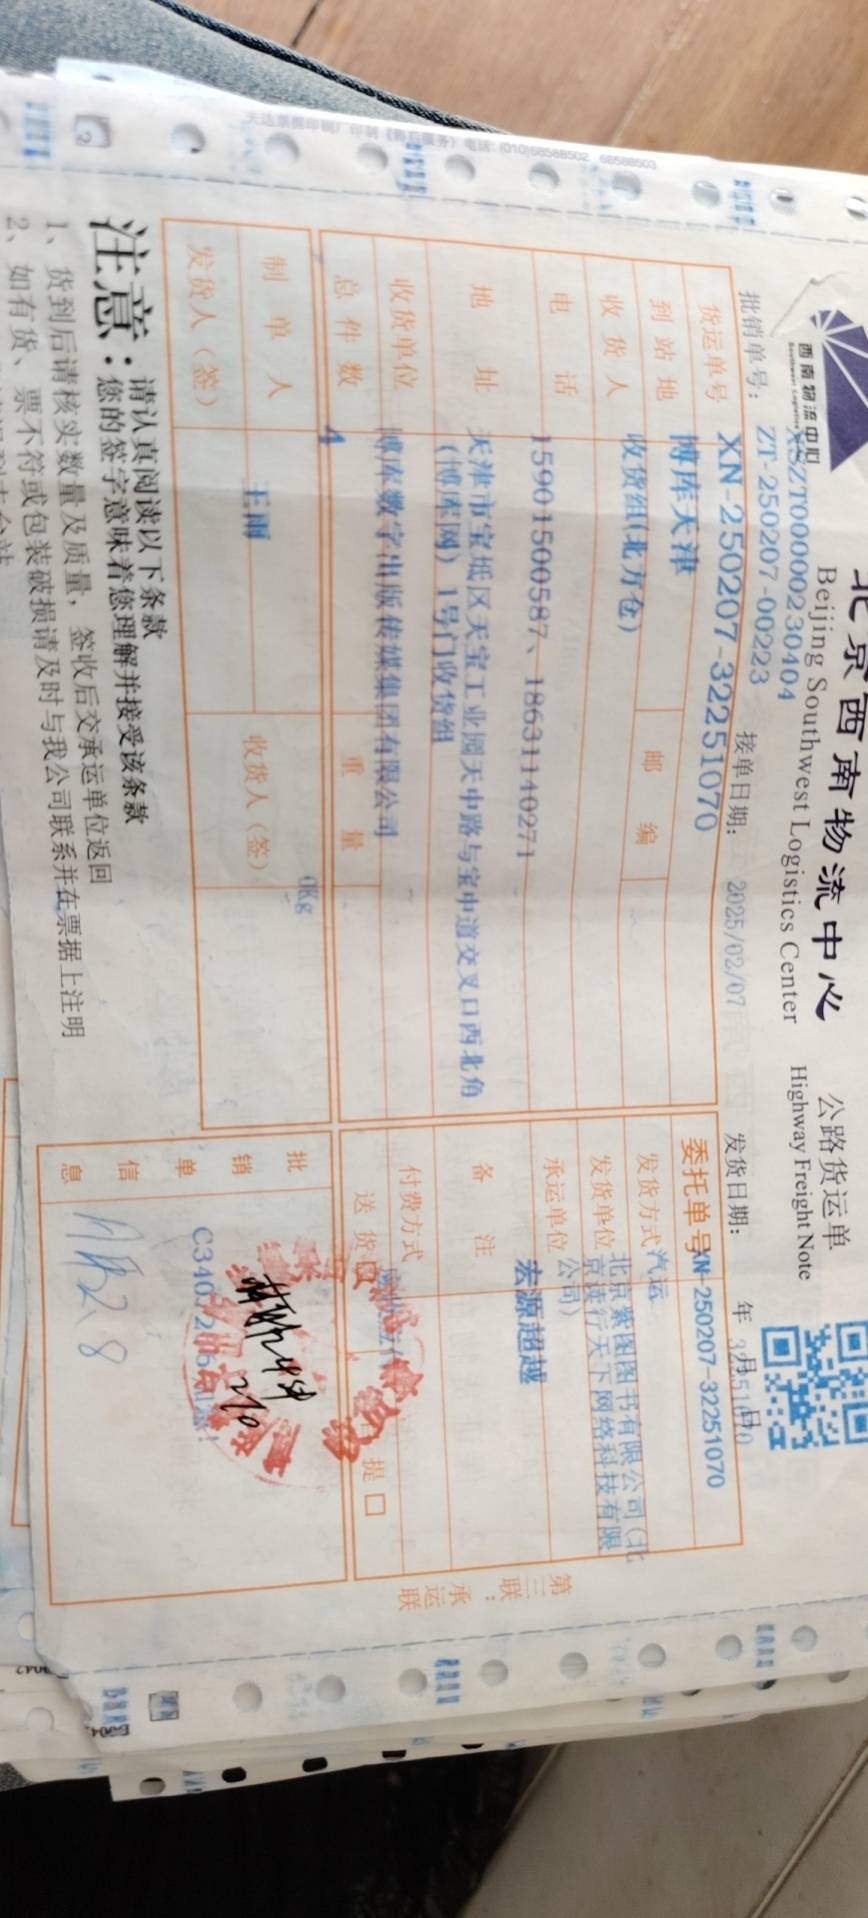 天达票据印刷厂印制 (售后服务) 电话: (010)68588502 68588503
西南物流中心
北京西南物流中心 公路货运单
Beijing Southwest Logistics Center Highway Freight Note
批销单号: XSZT00000230404
ZT-250207-00223
接单日期: 2025/02/07
发货日期: 年 月 日
货运单号 XN-250207-32251070
委托单号 XN-250207-32251070
到站地 博库天津
邮编
发货方式 汽运
收货人 收货组(北方仓)
发货单位 北京紫图图书有限公司(北京读行天下网络科技有限公司)
电话 15901500587、18631140271
承运单位 宏源超越
地址 天津市宝坻区天宝工业园天中路与宝中道交叉口西北角
(博库网) 1号门收货组
备注
收货单位 博库数字出版传媒集团有限公司
付费方式
总件数 4
重量 0Kg
送货 自提 口
制单人 王雨
收货人(签)
发货人(签)
批销单信息
第三联:承运联
注意: 请认真阅读以下条款
您的签字意味着您理解并接受该条款
1、货到后请核实数量及质量,签收后交承运单位返回
2、如有货、票不符或包装破损请及时与我公司联系并在票据上注明